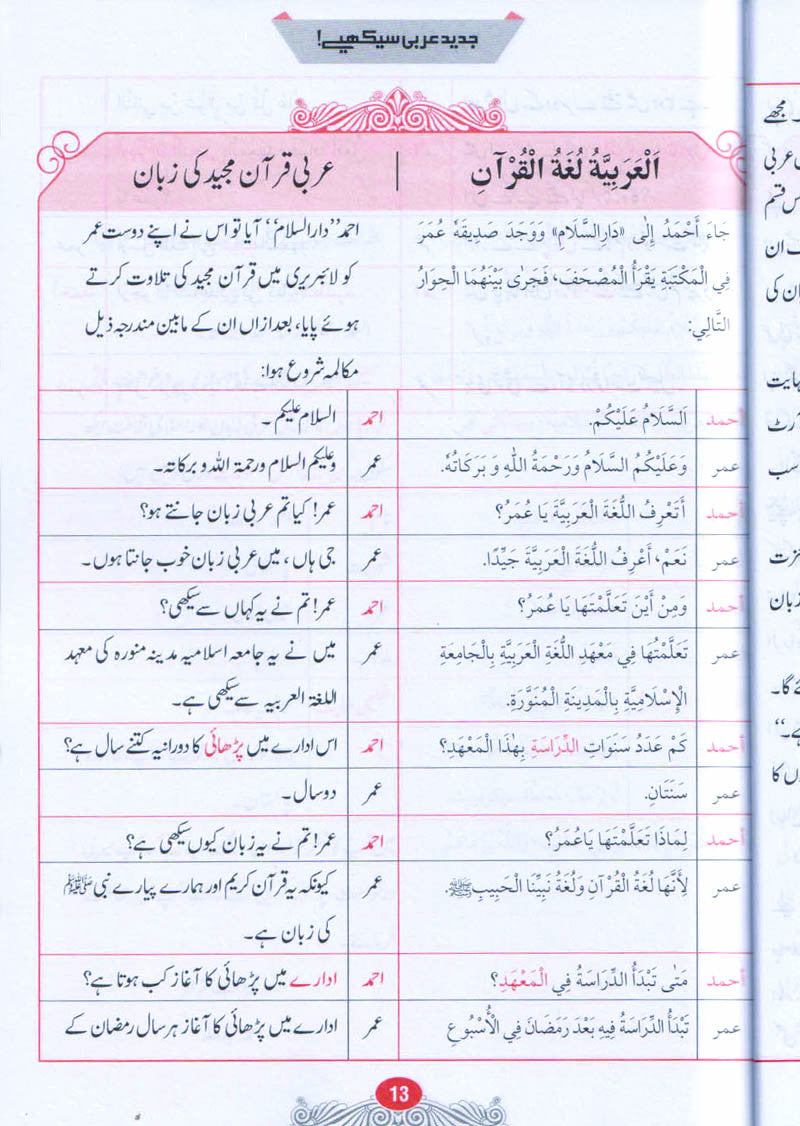 جدید عربی سیکھیے!
اَلْعَرَبِيَّةُ لُغَةُ الْقُرْآنِ | عربی قرآن مجید کی زبان
جَاءَ أَحْمَدُ إِلٰى «دَارِالسَّلَامِ» وَوَجَدَ صَدِيقَهٗ عُمَرَ
فِي الْمَكْتَبَةِ يَقْرَأُ الْمُصْحَفَ، فَجَرٰى بَيْنَهُمَا الْحِوَارُ
التَّالِي:
احمد ’’دارالسلام‘‘ آیا تو اس نے اپنے دوست عمر
کو لائبریری میں قرآن مجید کی تلاوت کرتے
ہوئے پایا، بعدازاں ان کے مابین مندرجہ ذیل
مکالمہ شروع ہوا:
أحمد اَلسَّلَامُ عَلَيْكُمْ. احمد السلام علیکم ۔
عمر وَعَلَيْكُمُ السَّلَامُ وَرَحْمَةُ اللّٰهِ وَبَرَكَاتُهٗ. عمر وعلیکم السلام ورحمۃ اللہ وبرکاتہ۔
أحمد أَتَعْرِفُ اللُّغَةَ الْعَرَبِيَّةَ يَا عُمَرُ؟ احمد عمر! کیا تم عربی زبان جانتے ہو؟
عمر نَعَمْ، أَعْرِفُ اللُّغَةَ الْعَرَبِيَّةَ جَيِّدًا. عمر جی ہاں، میں عربی زبان خوب جانتا ہوں۔
أحمد وَمِنْ أَيْنَ تَعَلَّمْتَهَا يَا عُمَرُ؟ احمد عمر! تم نے یہ کہاں سے سیکھی؟
عمر تَعَلَّمْتُهَا فِي مَعْهَدِ اللُّغَةِ الْعَرَبِيَّةِ بِالْجَامِعَةِ
الْإِسْلَامِيَّةِ بِالْمَدِينَةِ الْمُنَوَّرَةِ.
عمر میں نے یہ جامعہ اسلامیہ مدینہ منورہ کی معہد
اللغۃ العربیہ سے سیکھی ہے۔
أحمد كَمْ عَدَدُ سَنَوَاتِ الدِّرَاسَةِ بِهٰذَا الْمَعْهَدِ؟ احمد اس ادارے میں پڑھائی کا دورانیہ کتنے سال ہے؟
عمر سَنَتَانِ. عمر دو سال۔
أحمد لِمَاذَا تَعَلَّمْتَهَا يَاعُمَرُ؟ احمد عمر! تم نے یہ زبان کیوں سیکھی ہے؟
عمر لِأَنَّهَا لُغَةُ الْقُرْآنِ وَلُغَةُ نَبِيِّنَا الْحَبِيبِ ﷺ.
عمر کیونکہ یہ قرآن کریم اور ہمارے پیارے نبی ﷺ
کی زبان ہے۔
أحمد مَتٰى تَبْدَأُ الدِّرَاسَةُ فِي الْمَعْهَدِ؟ احمد ادارے میں پڑھائی کا آغاز کب ہوتا ہے؟
عمر تَبْدَأُ الدِّرَاسَةُ فِيهِ بَعْدَ رَمَضَانَ فِي الْأُسْبُوعِ عمر ادارے میں پڑھائی کا آغاز ہر سال رمضان کے
13
مجھے
عربی
قسم
ان
کی
نہایت
زبان
گا۔
ہے۔‘‘
کا